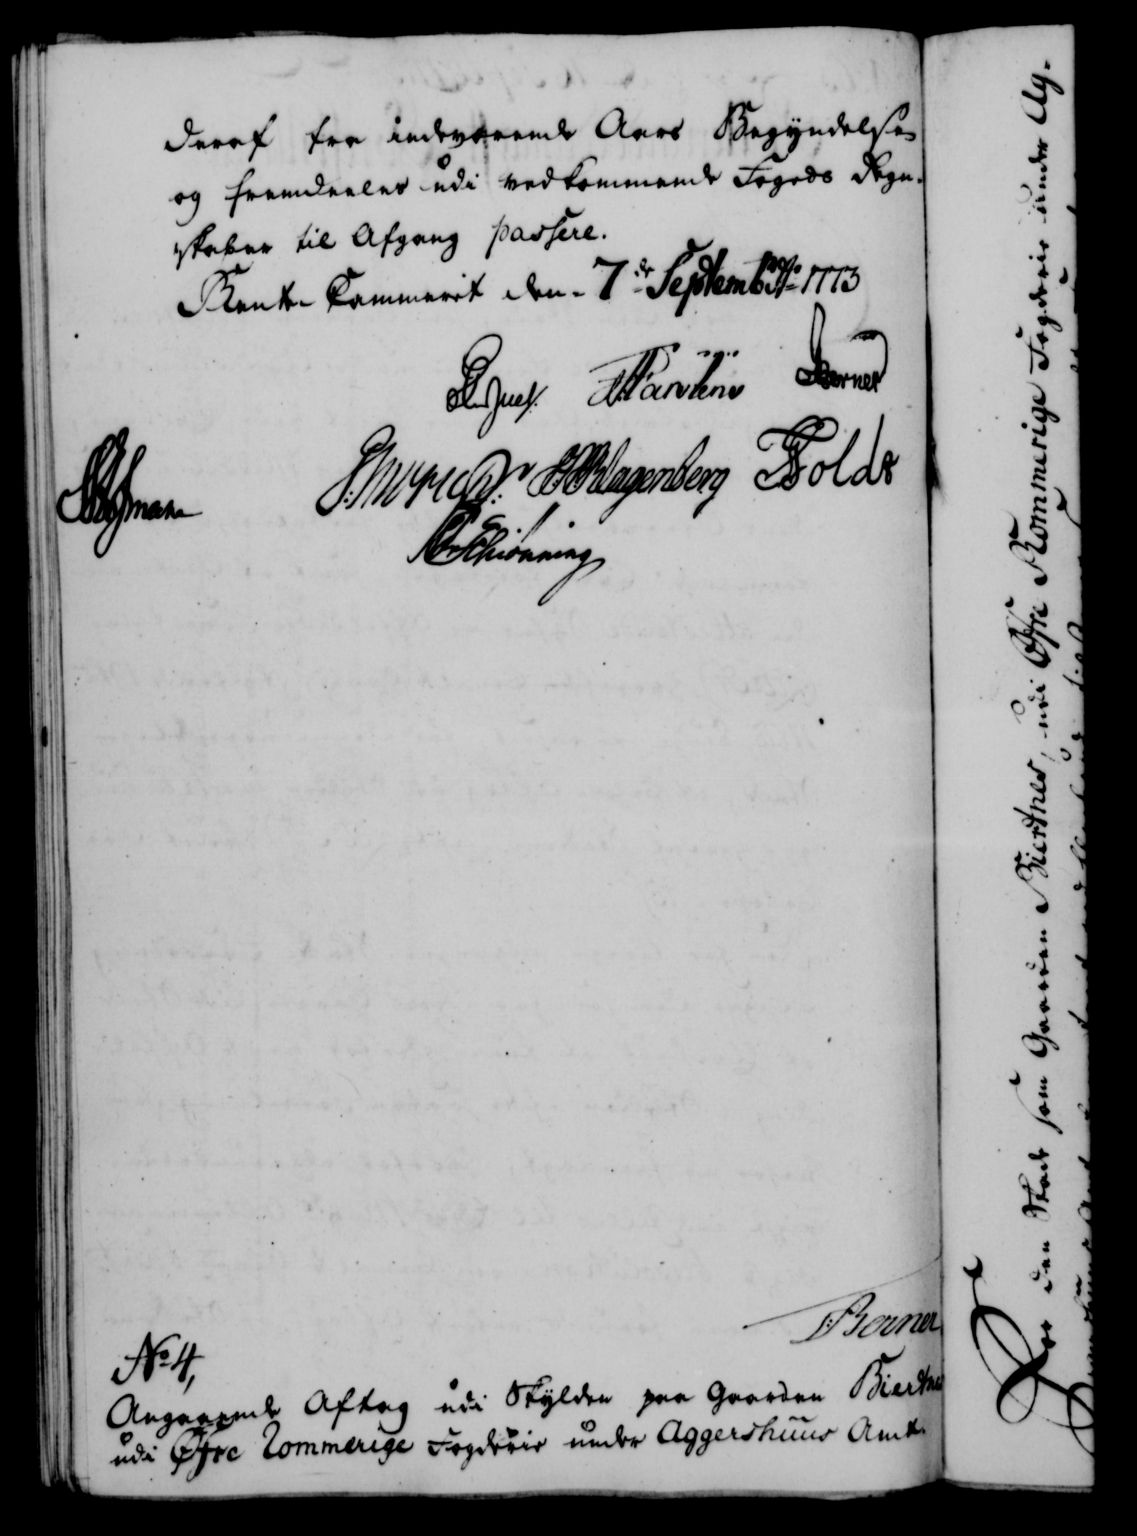 deraf fra indeværende Aars Begyndelse
og fremdeeles udi vedkommende Fogeds Regn-
skaber til Afgang passere.
Rente Cammeret den 7de Septembr Ao 1773
Børner
Klagenberg Holdt
Schiønning
Børner
No 4,
Angaaende Aftag udi Skylden paa Gaarden Biertnes
udi Øfre Rommerige Fogderie under Aggershuus Amt.
For den Skade som Gaarden Biertnes, udi Øfre Rommerige Fogderie under Ag-